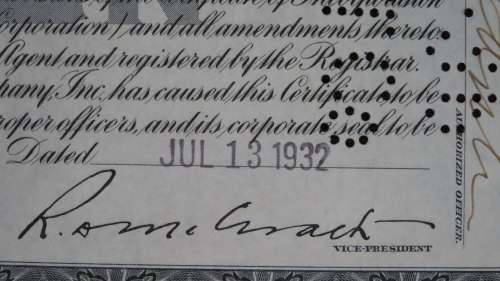 Corporation) and all amendments thereto.
Agent and registered by the Registrar.
pany, Inc. has caused this Certificate to be
roper officers, and its corporate seal to be
Dated JUL 13 1932
VICE-PRESIDENT
AUTHORIZED OFFICER.